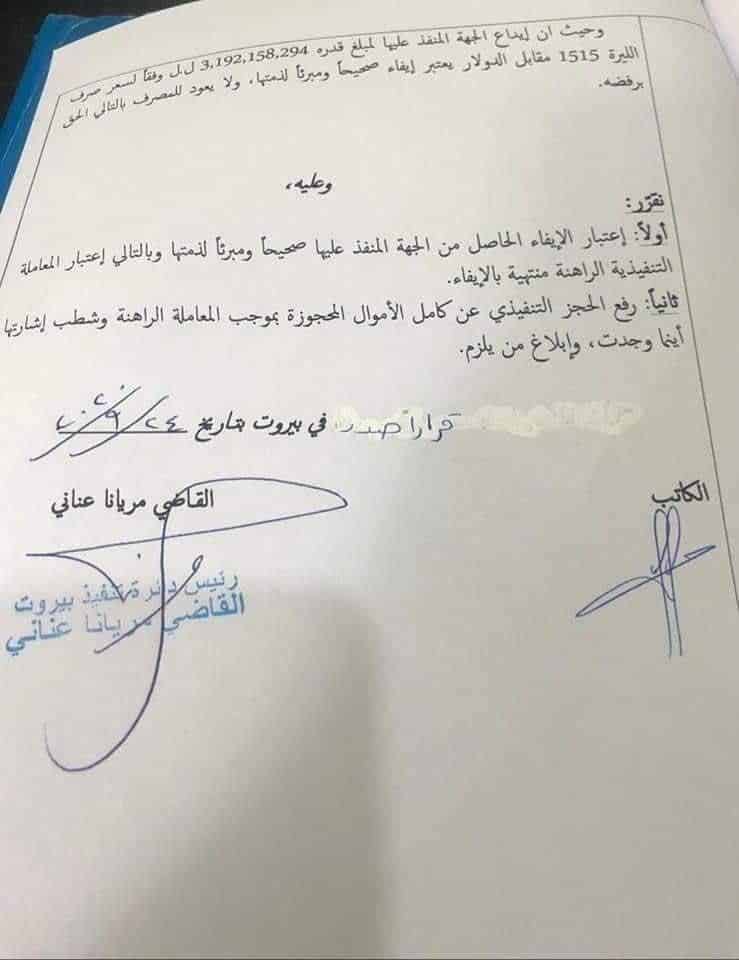 وحيث ان إيداع الجهة المنفذ عليها لمبلغ قدره 3,192,158,294 ل.ل وفقاً لسعر صرف
الليرة 1515 مقابل الدولار يعتبر إيفاء صحيحاً ومبرئاً لذمتها، ولا يعود للمصرف بالتالي الحق
برفضه.
وعليه،
نقرّر:
أولاً: إعتبار الإيفاء الحاصل من الجهة المنفذ عليها صحيحاً ومبرئاً لذمتها وبالتالي إعتبار المعاملة
التنفيذية الراهنة منتهية بالإيفاء.
ثانياً: رفع الحجز التنفيذي عن كامل الأموال المحجوزة بموجب المعاملة الراهنة وشطب إشارتها
أينما وجدت، وإبلاغ من يلزم.
قراراً صدر في بيروت بتاريخ ٢٤/٩/٢٠٢٠
الكاتب
القاضي مريانا عناني
رئيس دائرة تنفيذ بيروت
القاضي مريانا عناني